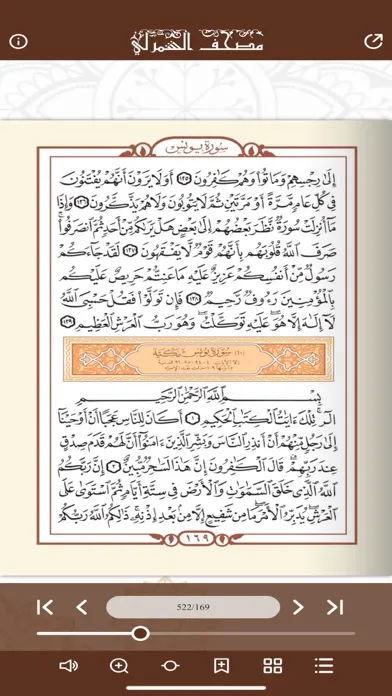 مصحف الشمرلي
سورة يونس
إِلَىٰ رِجْسِهِمْ وَمَاتُوا۟ وَهُمْ كَٰفِرُونَ ١٢٥ أَوَلَا يَرَوْنَ أَنَّهُمْ يُفْتَنُونَ
فِى كُلِّ عَامٍ مَّرَّةً أَوْ مَرَّتَيْنِ ثُمَّ لَا يَتُوبُونَ وَلَا هُمْ يَذَّكَّرُونَ ١٢٦ وَإِذَا
مَآ أُنزِلَتْ سُورَةٌ نَّظَرَ بَعْضُهُمْ إِلَىٰ بَعْضٍ هَلْ يَرَىٰكُم مِّنْ أَحَدٍ ثُمَّ ٱنصَرَفُوا۟
صَرَفَ ٱللَّهُ قُلُوبَهُم بِأَنَّهُمْ قَوْمٌ لَّا يَفْقَهُونَ ١٢٧ لَقَدْ جَآءَكُمْ
رَسُولٌ مِّنْ أَنفُسِكُمْ عَزِيزٌ عَلَيْهِ مَا عَنِتُّمْ حَرِيصٌ عَلَيْكُم
بِٱلْمُؤْمِنِينَ رَءُوفٌ رَّحِيمٌ ١٢٨ فَإِن تَوَلَّوْا۟ فَقُلْ حَسْبِىَ ٱللَّهُ
لَآ إِلَٰهَ إِلَّا هُوَ عَلَيْهِ تَوَكَّلْتُ وَهُوَ رَبُّ ٱلْعَرْشِ ٱلْعَظِيمِ ١٢٩
(١٠) سورة يونس مكية
بِسْمِ ٱللَّهِ ٱلرَّحْمَٰنِ ٱلرَّحِيمِ
الٓر تِلْكَ ءَايَٰتُ ٱلْكِتَٰبِ ٱلْحَكِيمِ ١ أَكَانَ لِلنَّاسِ عَجَبًا أَنْ أَوْحَيْنَآ
إِلَىٰ رَجُلٍ مِّنْهُمْ أَنْ أَنذِرِ ٱلنَّاسَ وَبَشِّرِ ٱلَّذِينَ ءَامَنُوٓا۟ أَنَّ لَهُمْ قَدَمَ صِدْقٍ
عِندَ رَبِّهِمْ قَالَ ٱلْكَٰفِرُونَ إِنَّ هَٰذَا لَسَٰحِرٌ مُّبِينٌ ٢ إِنَّ رَبَّكُمُ
ٱللَّهُ ٱلَّذِى خَلَقَ ٱلسَّمَٰوَٰتِ وَٱلْأَرْضَ فِى سِتَّةِ أَيَّامٍ ثُمَّ ٱسْتَوَىٰ عَلَى
ٱلْعَرْشِ يُدَبِّرُ ٱلْأَمْرَ مَا مِن شَفِيعٍ إِلَّا مِنۢ بَعْدِ إِذْنِهِۦ ذَٰلِكُمُ ٱللَّهُ رَبُّكُمْ
١٦٩
522/169